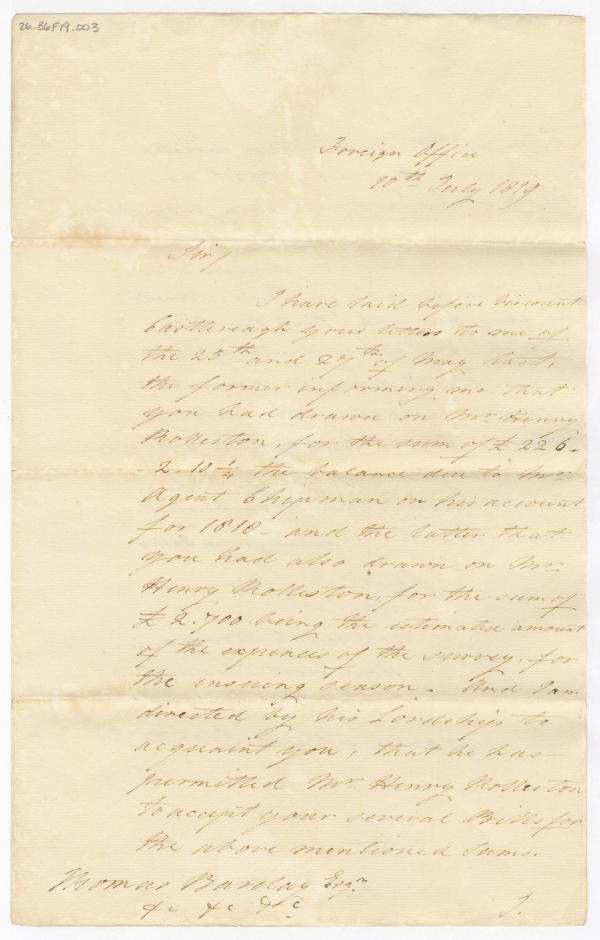 26-B6F19.003
Foreign Office
10th July 1819
Sir/
I have laid before Viscount
Castlereagh your letters to me of
the 25th and 27th of May last,
the former informing me that
you had drawn on Mr Henry
Rolleston, for the sum of £226.
-2.10 1/4 the balance due to Mr
Agent Chipman on his account
for 1818 - and the latter that
you had also drawn on Mr
Henry Rolleston, for the sum of
£2.700 being the estimated amount
of the expences of the survey, for
the ensuing season. And I am
directed by his Lordship to
acquaint you, that he has
permitted Mr Henry Rolleston
to accept your several Bills for
the above mentioned Sums.
Thomas Barclay Esqr
&c &c &c
I.